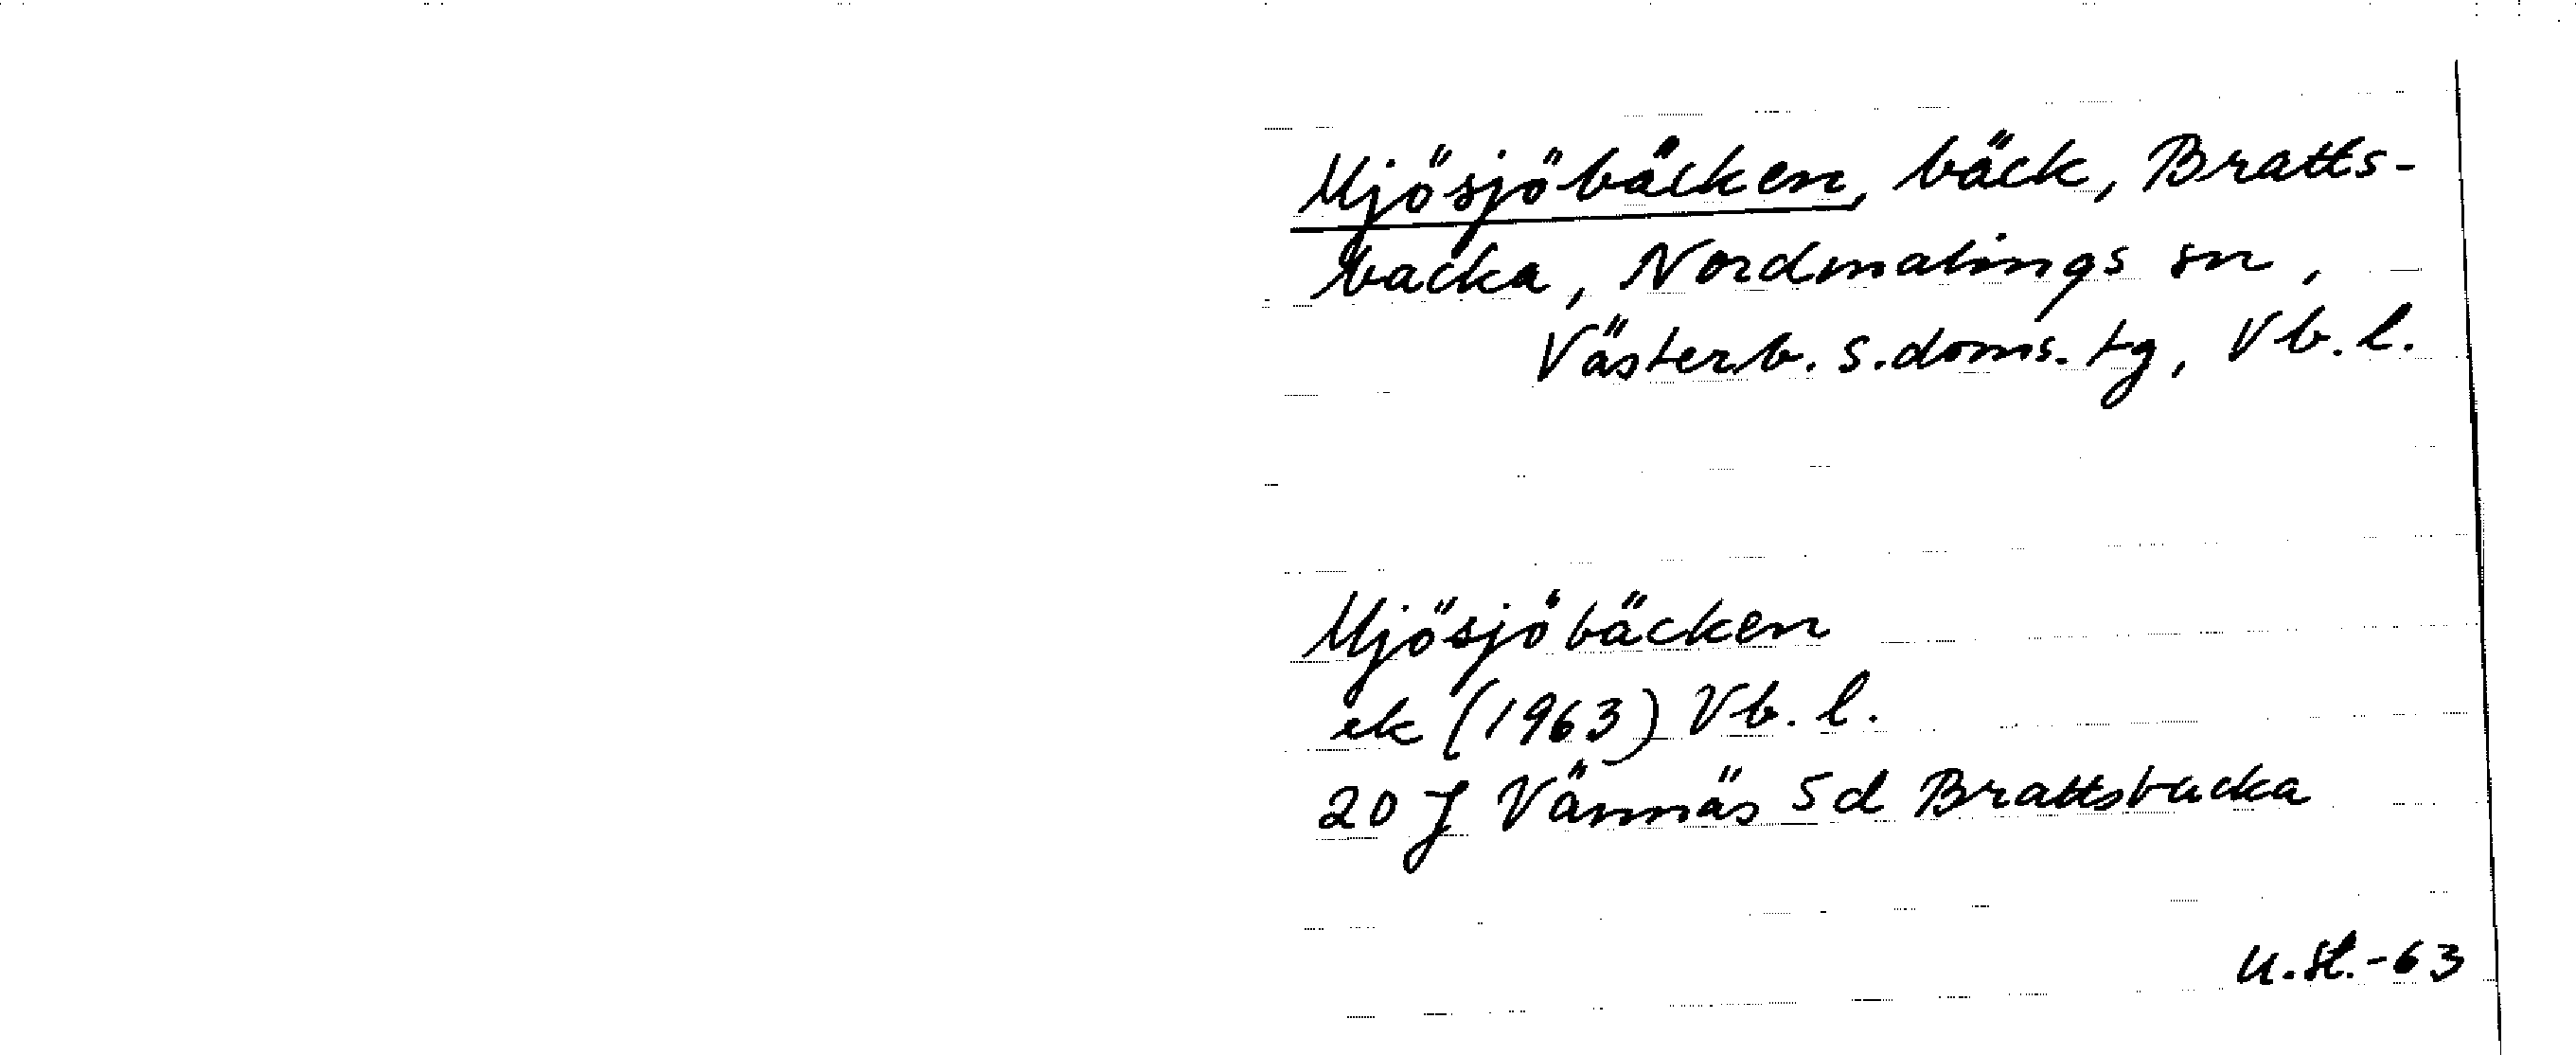 Mjösjöbäcken, bäck, Bratts-
backa, Nordmalings sn,
Västerb. s. doms. tg, Vb. l.
Mjösjöbäcken
ek (1963) Vb. l.
20 J Vännäs 5d Brattsbacka
u. st. -63